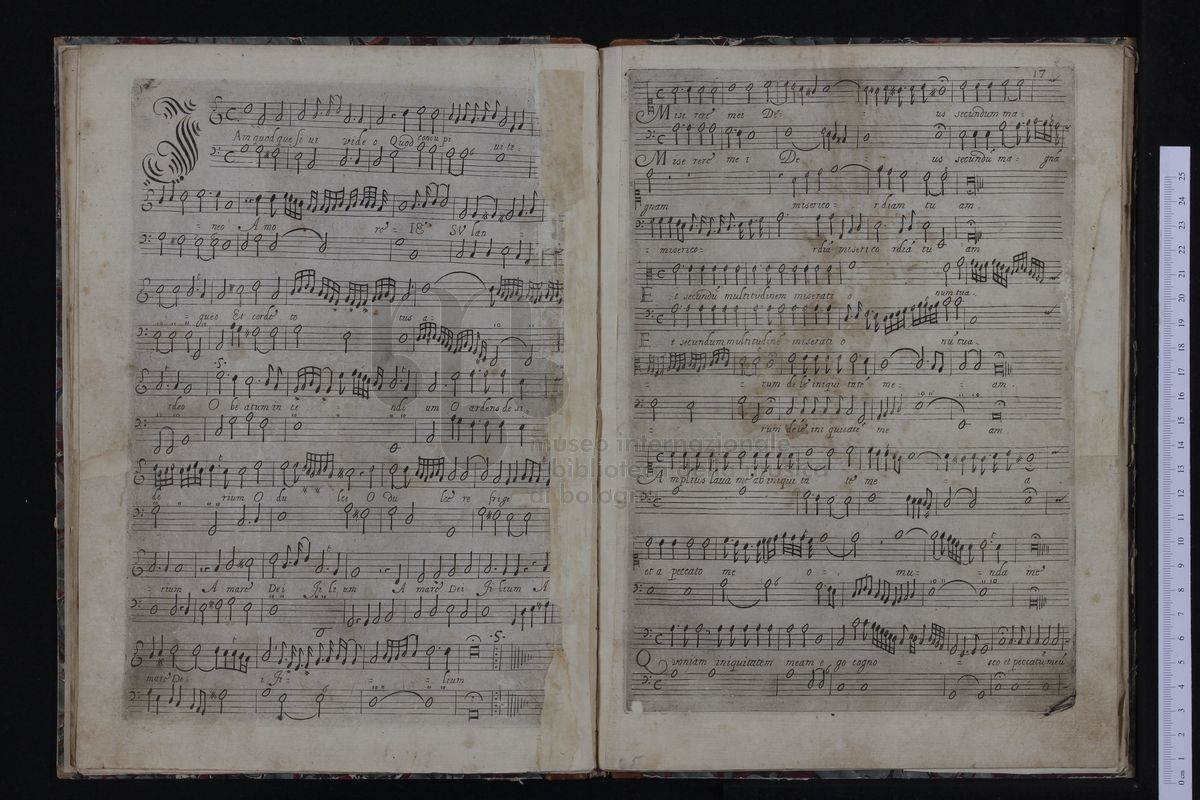 I
Am quod quesiui video Quod concupi uite-
neo Amo re 18 SV lan
gueo Et corde to tus a-
.S.
rdeo O beatum in ce ndi um O ardens de si
de rium O du lce O du lce re frige
rium Amare Dei fi li um Amare Dei fi lium A
.S.
mare De i fi lium
17
Miserere mei De us secundum ma-
Miserere mei De us secundū ma- gnā
gnam miserico- rdiam tu am.
miserico- rdiā miserico rdiā tu am
Et secundū multitudinem miserati o num tua.
Et secundum multitudinē miserati o nū tua.
rum dele iniqui tatē me- am.
rum dele ini quitatē me am.
Amplius laua me ab iniqui ta te me a
et a peccato me o- mu- nda me
Quoniam iniquitatem meam e go cogno sco et peccatū meū
museo internazionale
biblioteca della musica
di bologna
0 cm 1 2 3 4 5 6 7 8 9 10 11 12 13 14 15 16 17 18 19 20 21 22 23 24 25